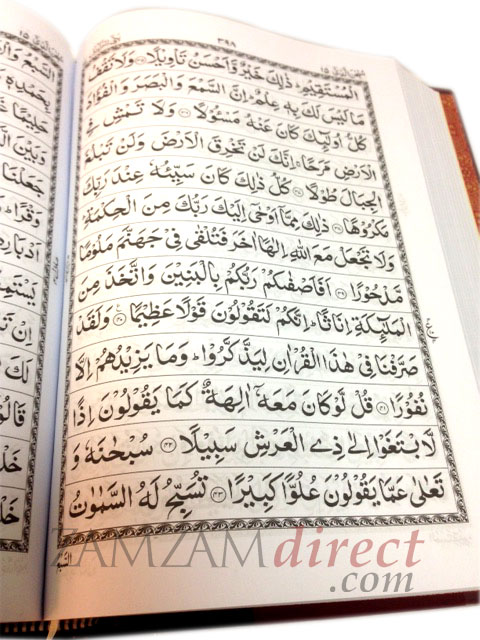 ۳۹۸
الْمُسْتَقِيْمِ ؕ ذٰلِكَ خَيْرٌ وَّاَحْسَنُ تَاْوِيْلًا ﴿۳۵﴾ وَلَا تَقْفُ
مَا لَيْسَ لَكَ بِهٖ عِلْمٌ ؕ اِنَّ السَّمْعَ وَالْبَصَرَ وَالْفُؤَادَ
كُلُّ اُولٰٓئِكَ كَانَ عَنْهُ مَسْـُٔوْلًا ﴿۳۶﴾ وَلَا تَمْشِ فِي
الْاَرْضِ مَرَحًا ۚ اِنَّكَ لَنْ تَخْرِقَ الْاَرْضَ وَلَنْ تَبْلُغَ
الْجِبَالَ طُوْلًا ﴿۳۷﴾ كُلُّ ذٰلِكَ كَانَ سَيِّئُهٗ عِنْدَ رَبِّكَ
مَكْرُوْهًا ﴿۳۸﴾ ذٰلِكَ مِمَّآ اَوْحٰٓى اِلَيْكَ رَبُّكَ مِنَ الْحِكْمَةِ ؕ
وَلَا تَجْعَلْ مَعَ اللّٰهِ اِلٰهًا اٰخَرَ فَتُلْقٰى فِيْ جَهَنَّمَ مَلُوْمًا
مَّدْحُوْرًا ﴿۳۹﴾ اَفَاَصْفٰىكُمْ رَبُّكُمْ بِالْبَنِيْنَ وَاتَّخَذَ مِنَ
الْمَلٰٓئِكَةِ اِنَاثًا ؕ اِنَّكُمْ لَتَقُوْلُوْنَ قَوْلًا عَظِيْمًا ﴿۴۰﴾ وَلَقَدْ
صَرَّفْنَا فِيْ هٰذَا الْقُرْاٰنِ لِيَذَّكَّرُوْا ؕ وَمَا يَزِيْدُهُمْ اِلَّا
نُفُوْرًا ﴿۴۱﴾ قُلْ لَّوْ كَانَ مَعَهٗٓ اٰلِهَةٌ كَمَا يَقُوْلُوْنَ اِذًا
لَّابْتَغَوْا اِلٰى ذِي الْعَرْشِ سَبِيْلًا ﴿۴۲﴾ سُبْحٰنَهٗ وَ
تَعٰلٰى عَمَّا يَقُوْلُوْنَ عُلُوًّا كَبِيْرًا ﴿۴۳﴾ تُسَبِّحُ لَهُ السَّمٰوٰتُ
ZAMZAMdirect
.com